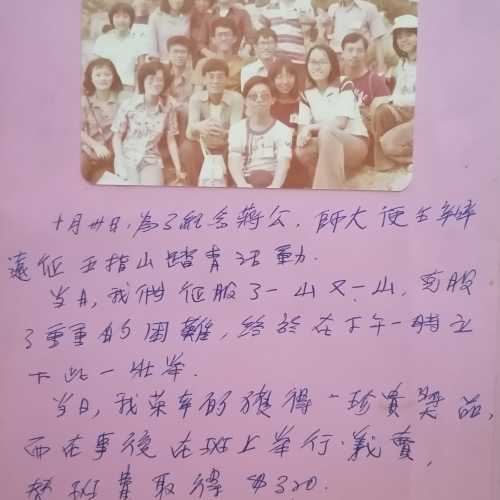 十月卅日，為了紀念蔣公，師大便主辦
遠征五指山踏青活動.
當日，我們征服了一山又一山，克服
了重重的困難，終於在下午一時立
下此一壯舉.
當日，我榮幸的獲得"珍貴獎品，
而在事後在班上舉行義賣，
替班費取得$320.